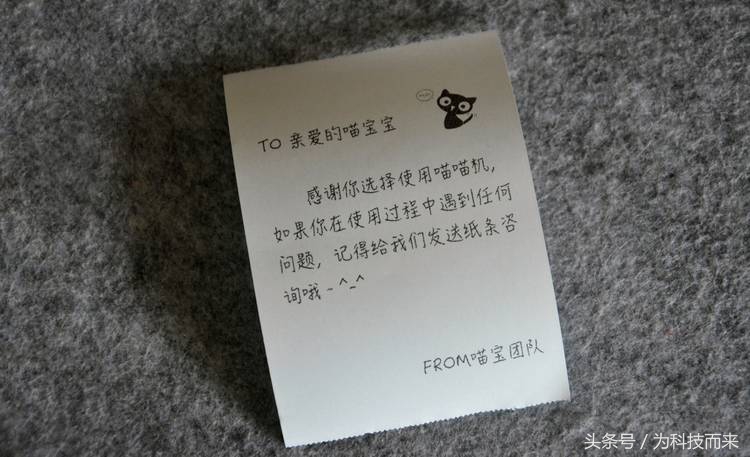 TO 亲爱的喵宝宝
感谢你选择使用喵喵机,
如果你在使用过程中遇到任何
问题, 记得给我们发送纸条咨
询哦 ~ ^_^
FROM喵宝团队
头条号 / 为科技而来